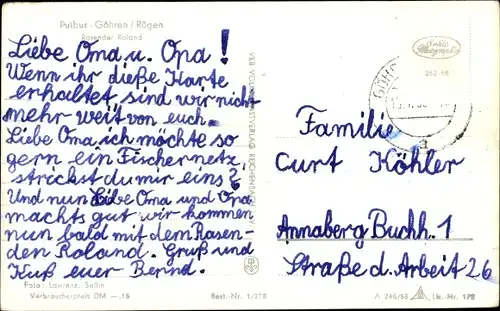 Putbus - Göhren / Rügen
Rasender Roland
Liebe Oma u. Opa!
Wenn ihr dieße Karte
erhaltet sind wir nicht
mehr weit von euch.
Liebe Oma, ich möchte so
gern ein Fischernetz,
strickst du mir eins?
Und nun Liebe Oma und Opa
machts gut wir kommen
nun bald mit dem Rasen-
den Roland. Gruß und
Kuß euer Bernd.
Foto: Lawrenz, Sellin
Verbraucherpreis DM –,15
Best.-Nr. 1/278
VEB
REICHENBACH
Echte
Photographie
262-58
GÖHR
Familie
Curt Köhler
Annaberg Buchh. 1
Straße d. Arbeit 26
A 246/58